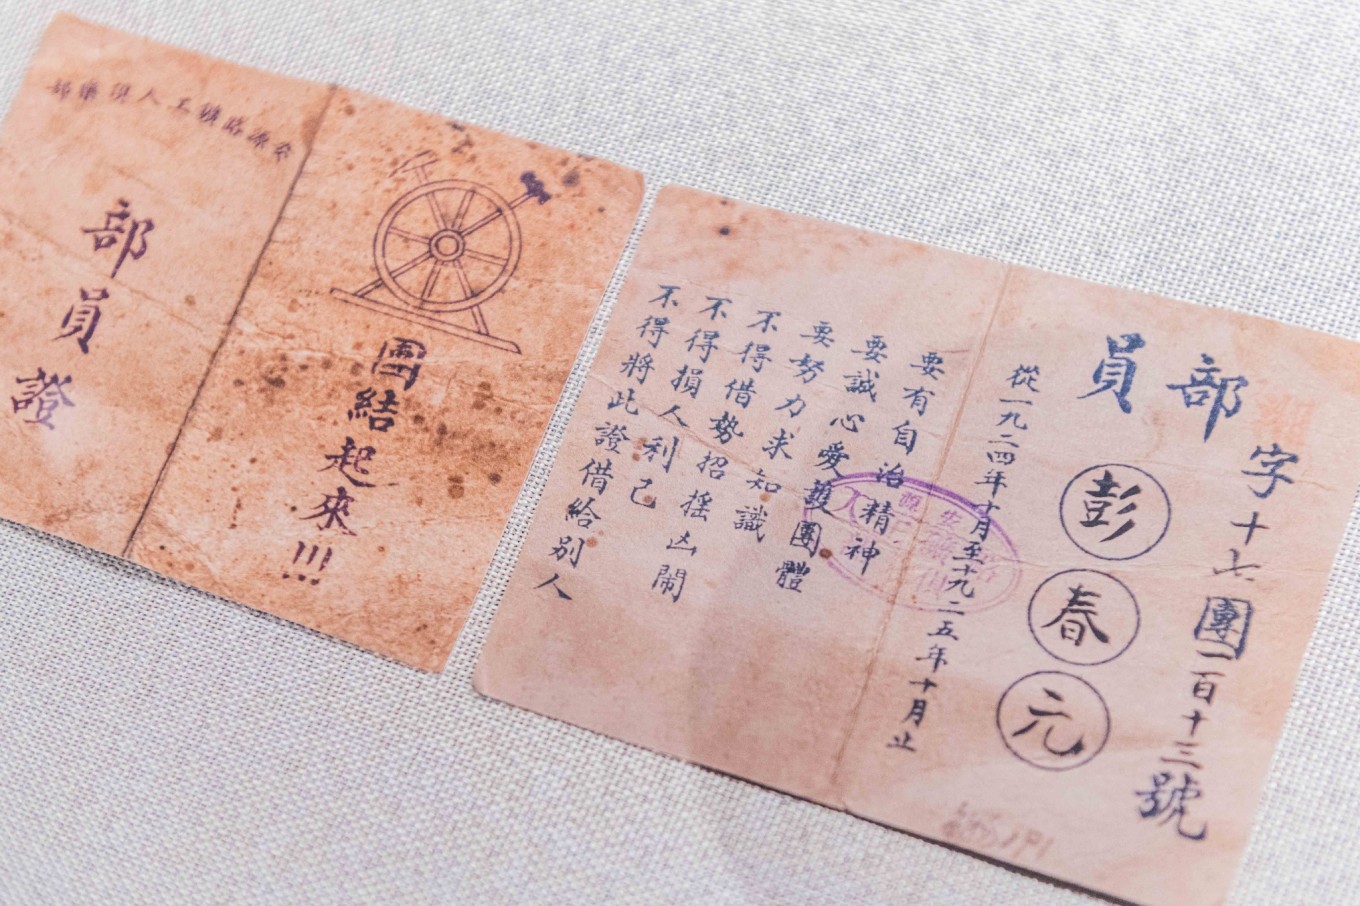 安源路鑛工人俱樂部
部員證
團結起來!!!
字十七團一百十三號
部員
彭春元
從一九二四年十月至一九二五年十月止
要有自治精神
要誠心愛護團體
要努力求知識
不得借勢招搖凶鬧
不得損人利己
不得將此證借給別人